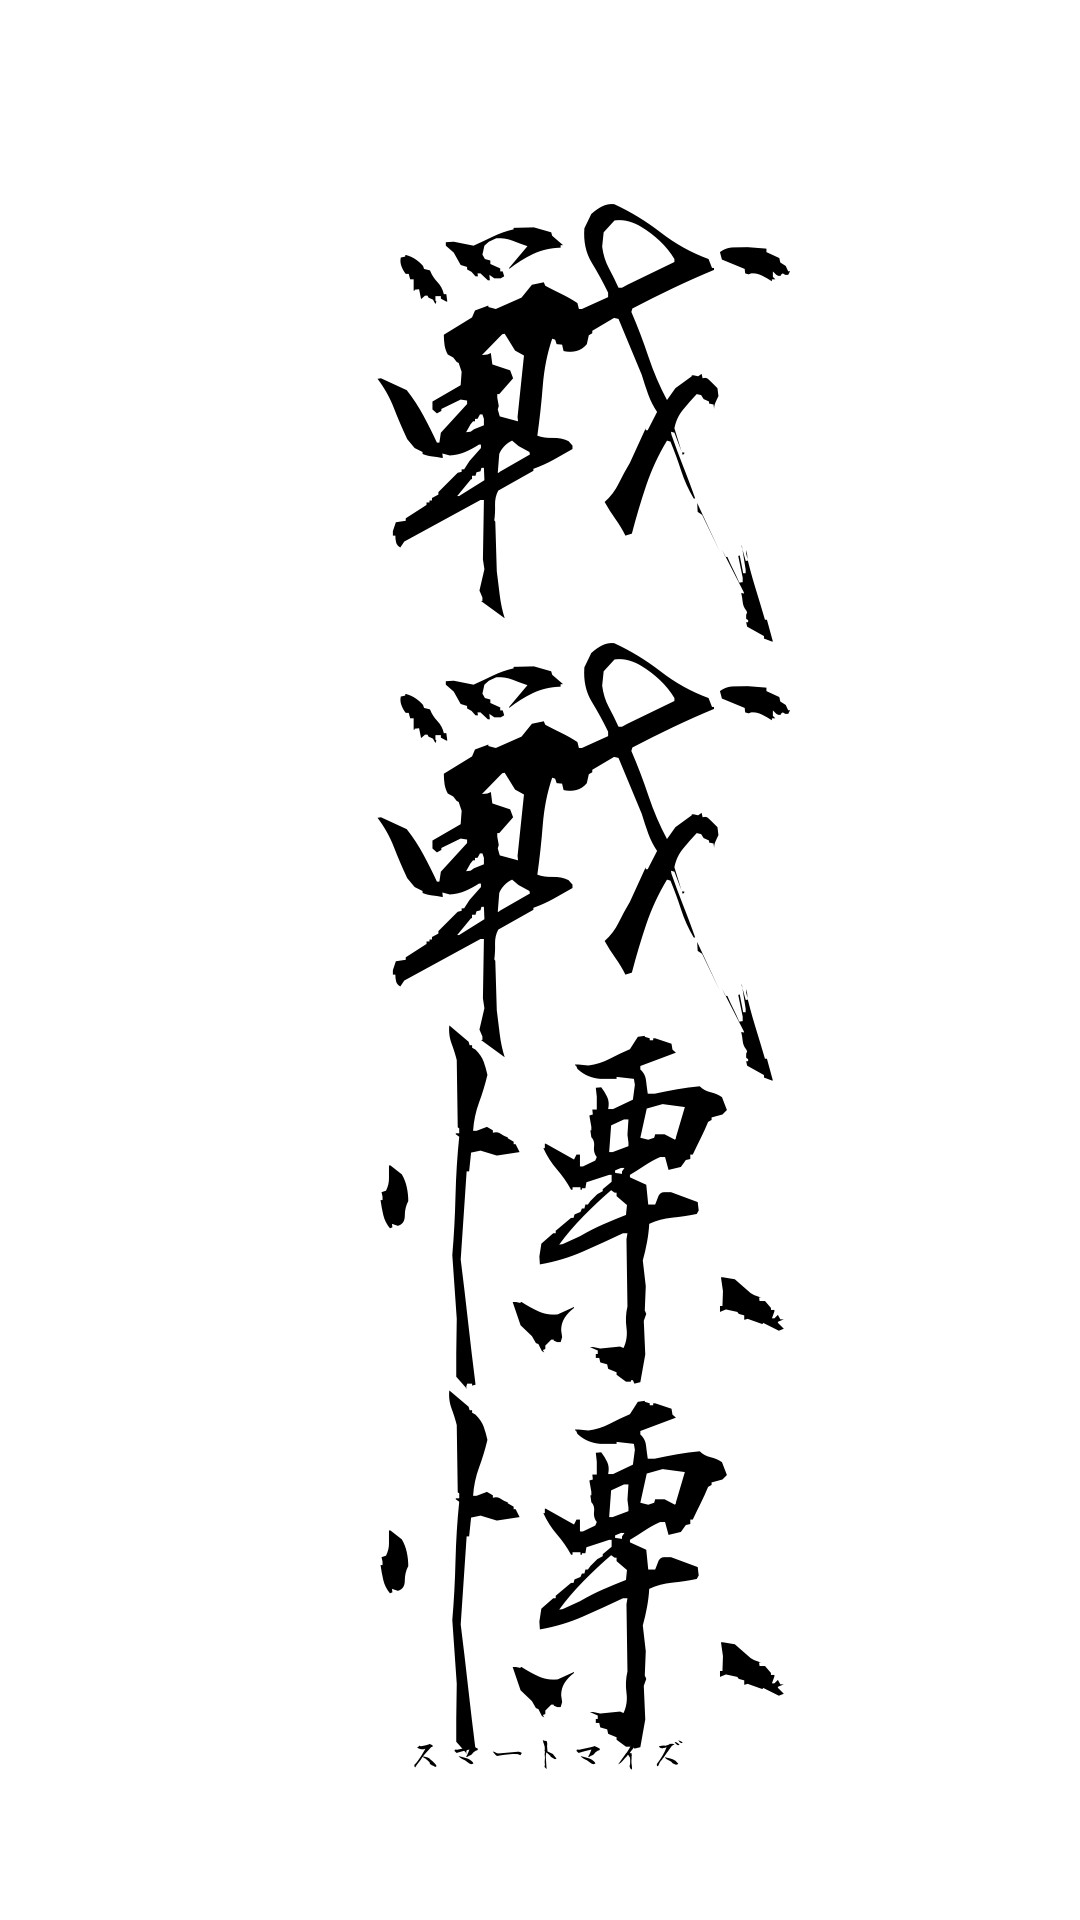 戦戦慄慄
スマートマイズ